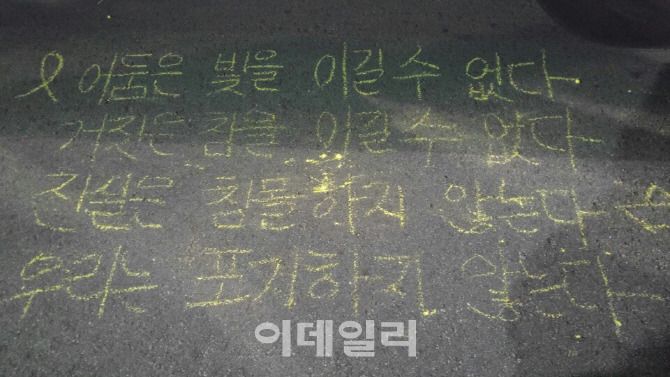 어둠은 빛을 이길 수 없다
거짓은 참을 이길 수 없다
진실은 침몰하지 않는다
우리는 포기하지 않는다
이데일리